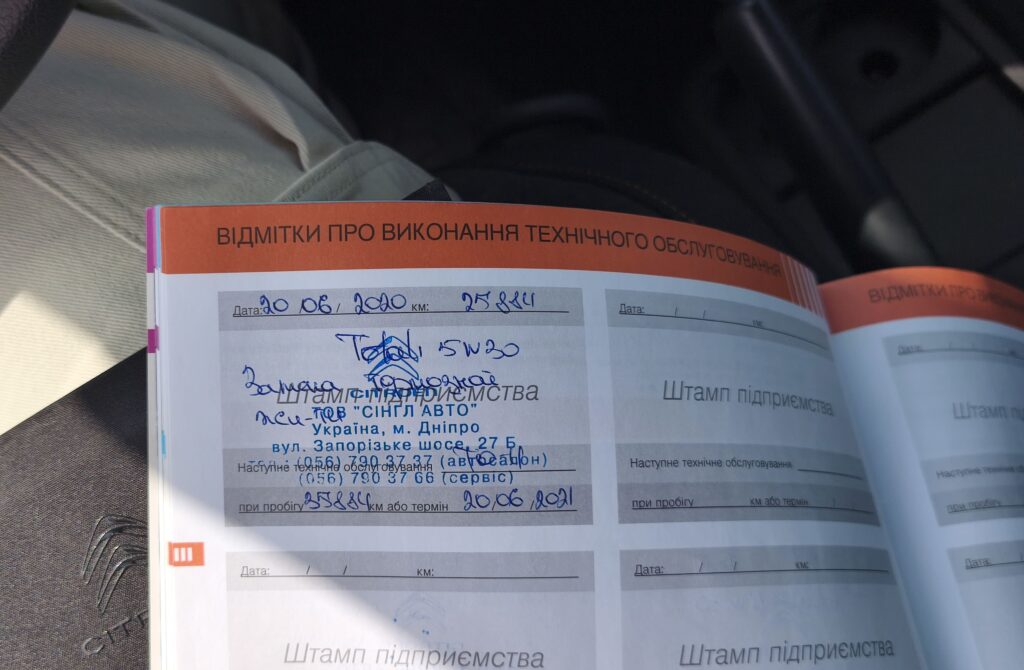 ВІДМІТКИ ПРО ВИКОНАННЯ ТЕХНІЧНОГО ОБСЛУГОВУВАННЯ
Дата: 20 / 06 / 2020 км: 25884
Total 5W30
Заміна тормозной
жи-ти
Штамп підприємства
СІТРОЕН
ТОВ "СІНГЛ АВТО"
Україна, м. Дніпро
вул. Запорізьке шосе, 27 Б,
(056) 790 37 37 (автосалон)
(056) 790 37 66 (сервіс)
Наступне технічне обслуговування ТО-4
при пробігу 35884 км або термін 20/06/2021
Дата: / / км:
Штамп підприємства
Наступне технічне обслуговування
при пробігу км або термін / /
Дата: / / км:
Штамп підприємства
Дата: / / км:
Штамп підприємства
ВІДМІТКИ ПРО
Дата:
Штамп
Наступне технічне
при пробігу
Дата:
CITR